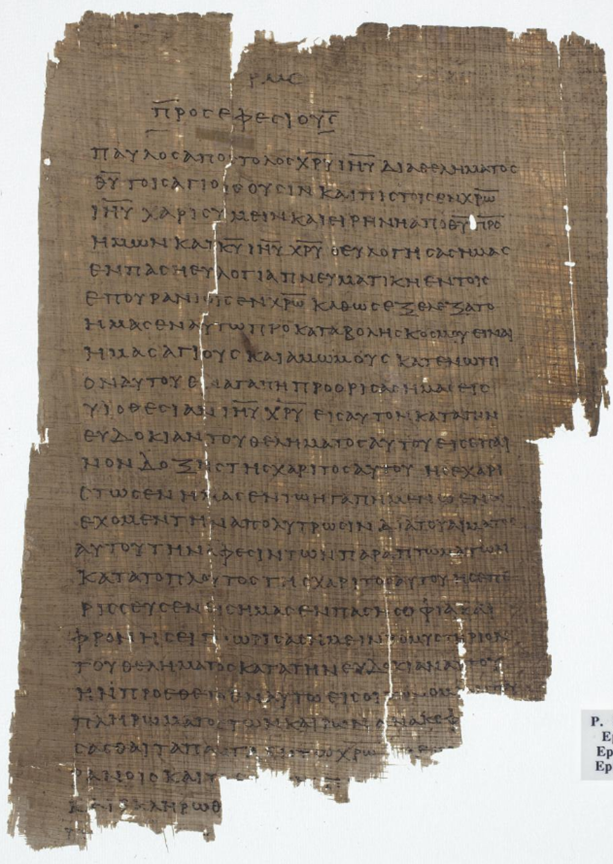 ρμϛ
π̅ροϲεφεϲιουϲ̅
παυλοϲαποϲτολοϲχ̅ρ̅υ̅ι̅η̅υ̅διαθεληματοϲ
θ̅υ̅τοιϲαγιοιϲουϲινκαιπιϲτοιϲενχ̅ρ̅ω̅
ι̅η̅υ̅χαριϲυμεινκαιειρηνηαποθ̅υ̅π̅ρ̅ϲ̅
ημωνκαικ̅υ̅ι̅η̅υ̅χ̅ρ̅υ̅οευλογηϲαϲημαϲ
ενπαϲηευλογιαπνευματικηεντοιϲ
επουρανιοιϲενχ̅ρ̅ω̅καθωϲεξελεξατο
ημαϲεναυτωπροκαταβοληϲκοϲμουειναι
ημαϲαγιουϲκαιαμωμουϲκατενωπι
οναυτουεναγαπηπροοριϲαϲημαϲειϲ
υιοθεϲιανι̅η̅υ̅χ̅ρ̅υ̅ειϲαυτονκατατην
ευδοκιαντουθεληματοϲαυτουειϲεπαι
νονδοξηϲτηϲχαριτοϲαυτουηϲεχαρι
τωϲενημαϲεντωηγαπημενωενω
εχομεντηναπολυτρωϲινδιατουαιματοϲ
αυτουτηναφεϲιντωνπαραπτωματων
κατατοπλουτοϲτηϲχαριτοϲαυτουηϲεπε
ριϲϲευϲενειϲημαϲενπαϲηϲοφιακαι
φρονηϲειγνωριϲαϲημειντομυϲτηριον
τουθεληματοϲκατατηνευδοκιαναυτου
ηνπροεθετοεναυτωειϲοικονομ
πληρωματοϲτωνκαιρωνανακεφ
ϲαϲθαιταπαντ
ρανοιϲκαιτ
καιεκληρωθ
P.